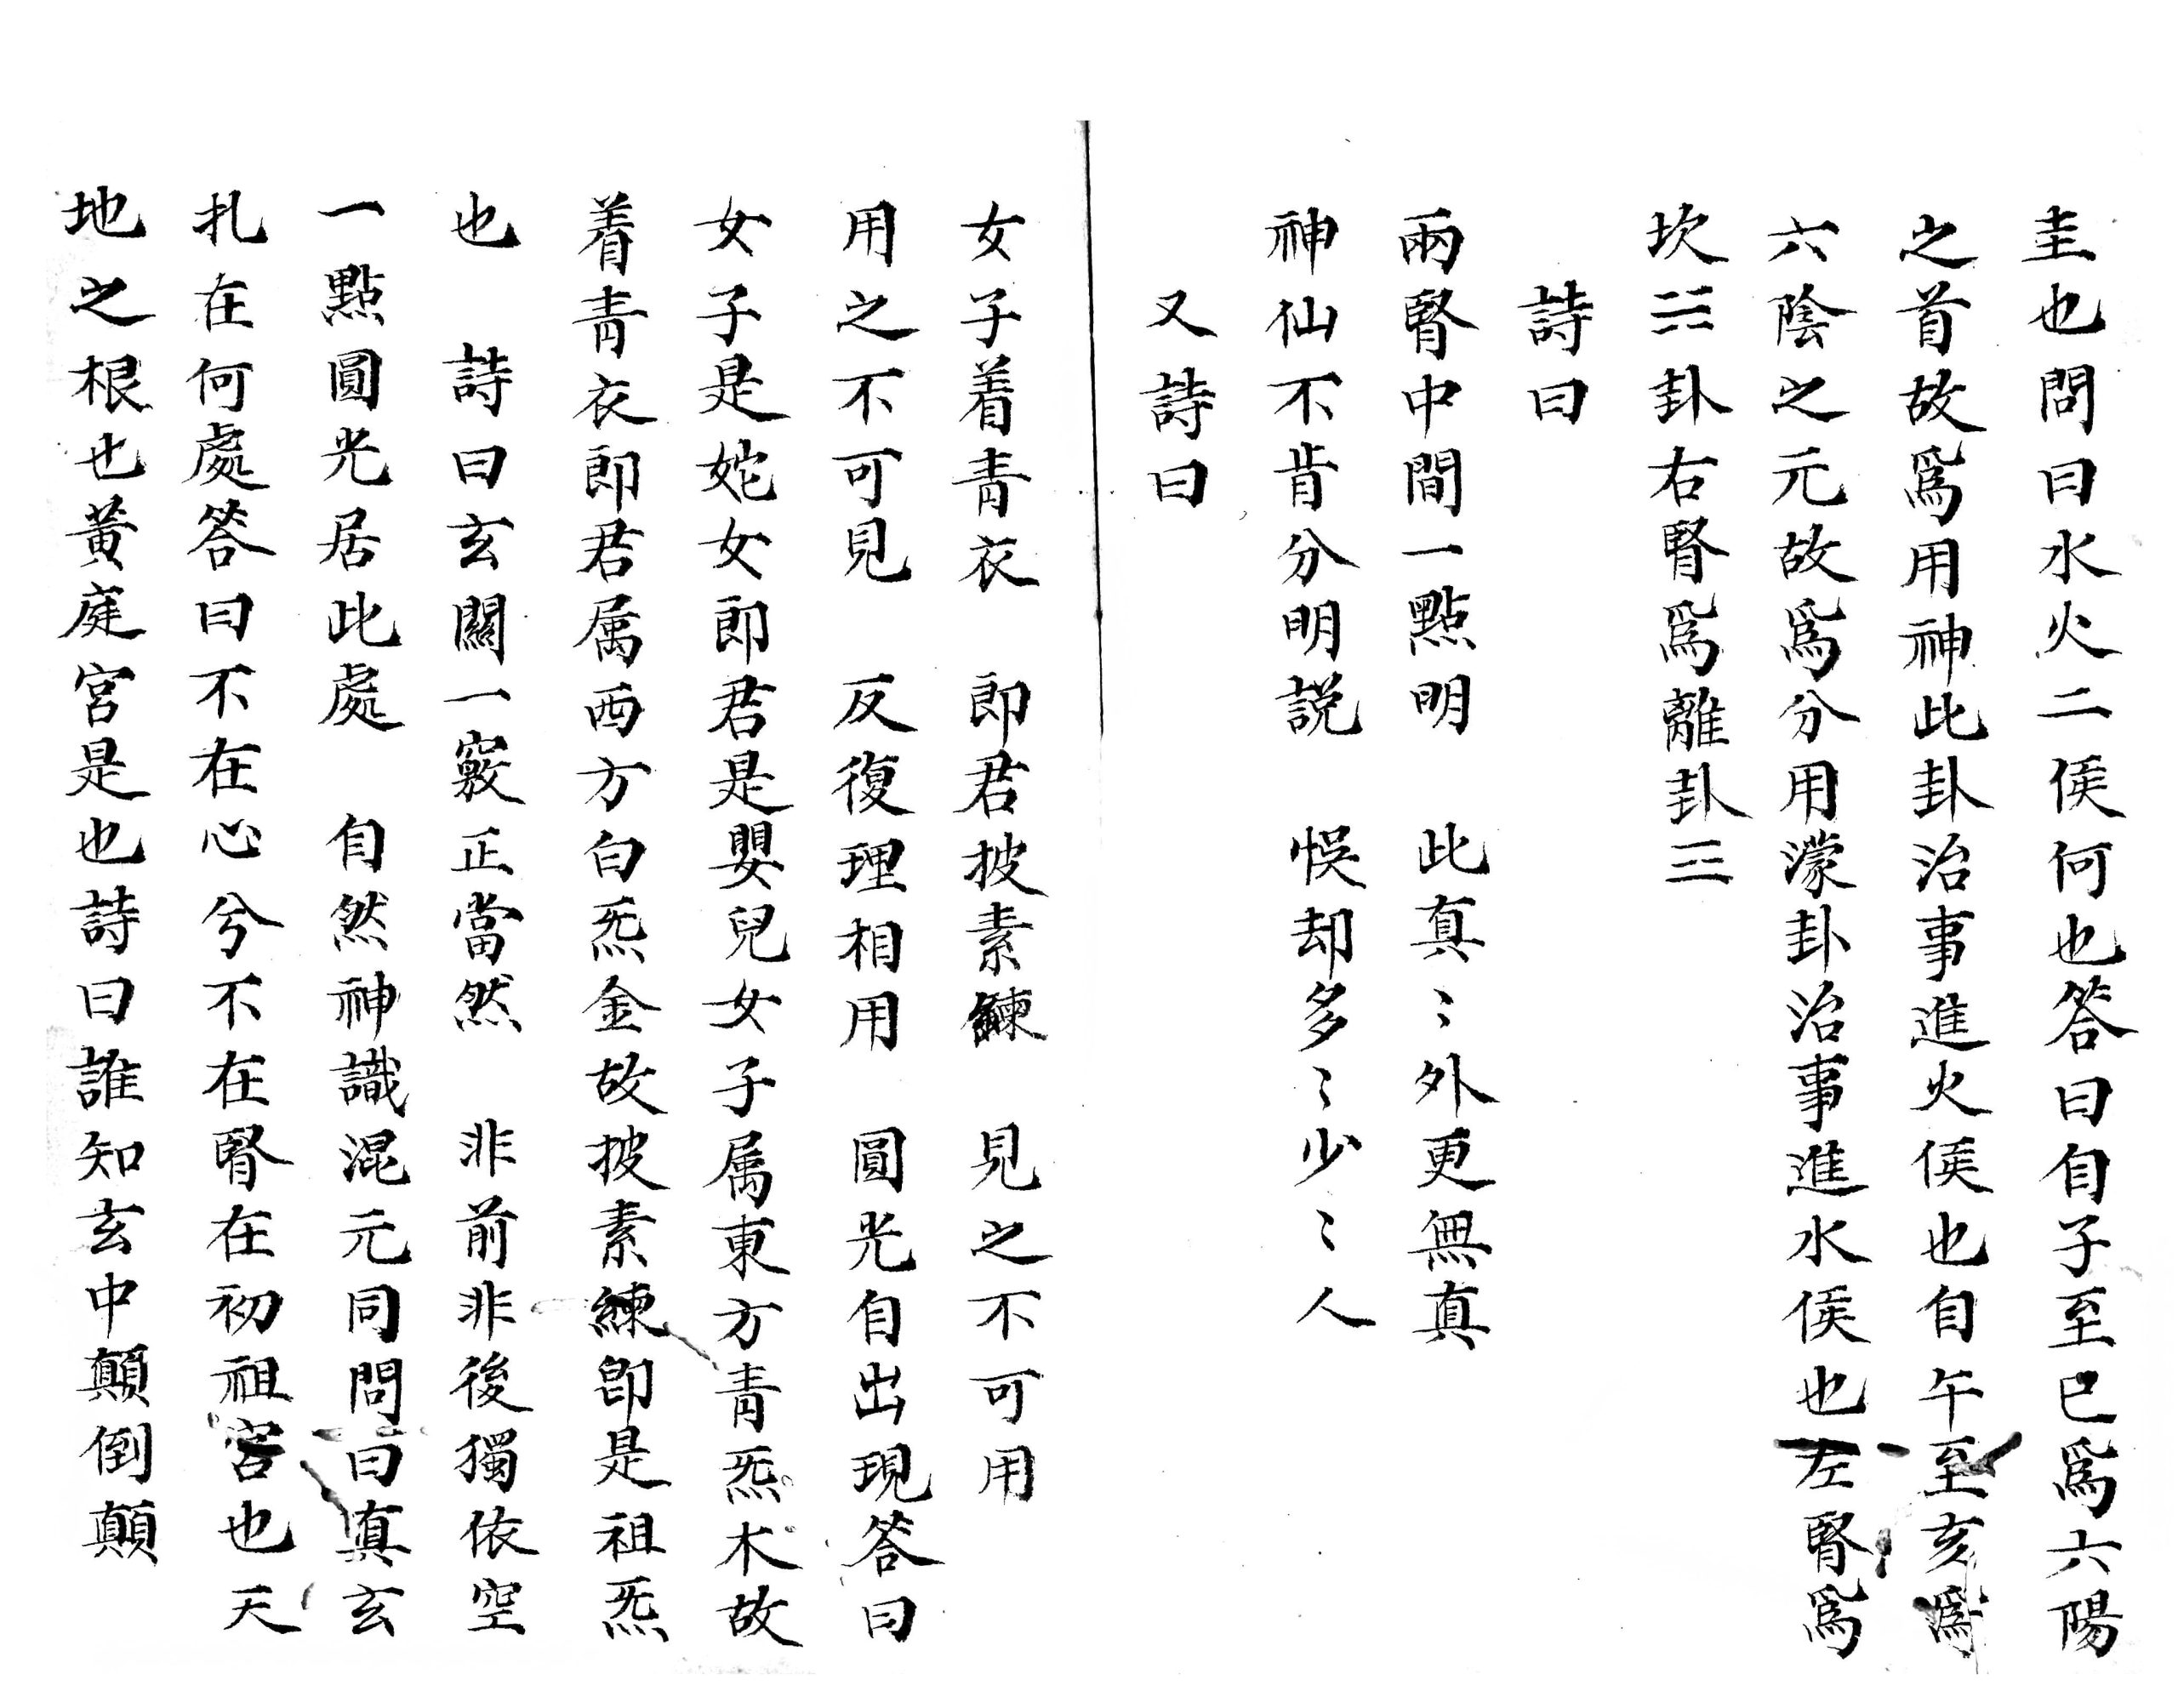 圭也問曰水火二候何也答曰自子至巳爲六陽
之首故爲用神此卦治事進火候也自午至亥爲
六陰之元故爲分用濛卦治事進水候也左腎爲
坎☵卦右腎爲離卦☲
詩曰
兩腎中間一點明 此真〻外更無真
神仙不肯分明説 悮却多〻少〻人
又詩曰
女子着青衣 郎君披素鍊 見之不可用
用之不可見 反復理相用 圓光自出現答曰
女子是姹女郎君是嬰兒女子属東方青炁木故
着青衣郎君属西方白炁金故披素練卽是祖炁
也 詩曰玄關一竅正當然 非前非後獨依空
一點圓光居此處 自然神識混元同問曰真玄
扎在何處答曰不在心兮不在腎在初祖宮也天
地之根也黃庭宮是也詩曰誰知玄中顛倒顛